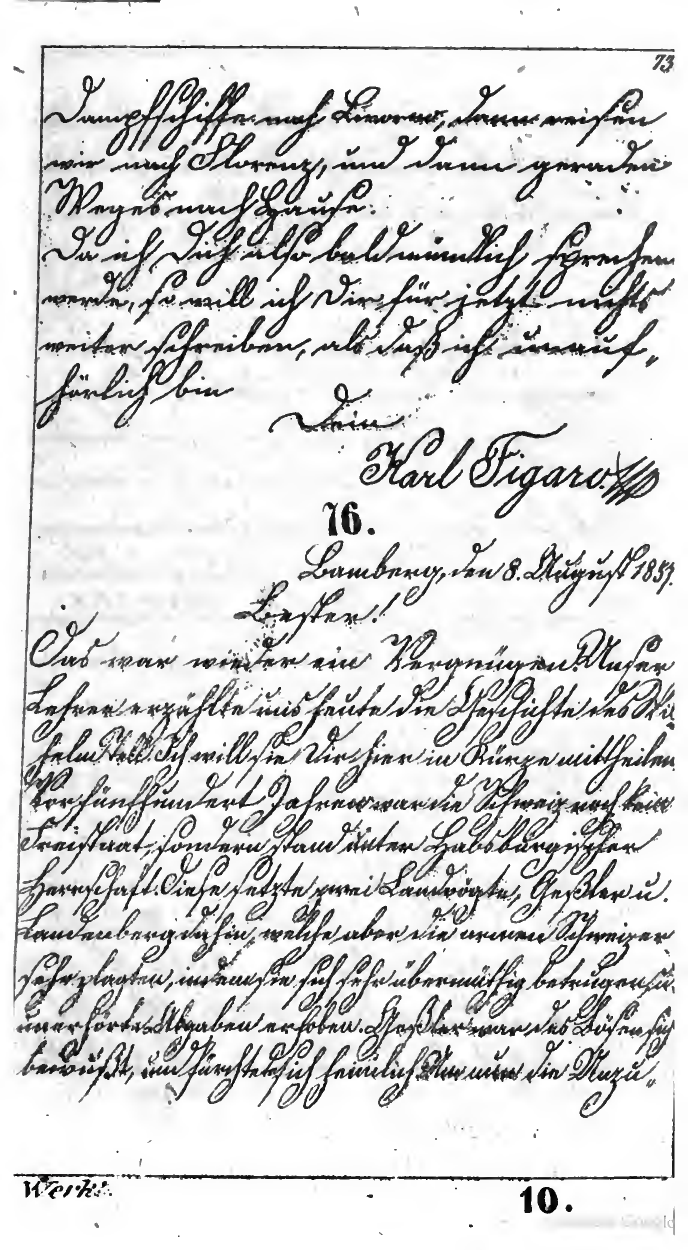 73
Dampfschiffe nach Livorno, dann reisen
wir nach Florenz, und dann geraden
Weges nach Hause.
Da ich Dich also bald mündlich sprechen
werde, so will ich Dir für jetzt nichts
weiter schreiben, als daß ich unauf„
hörlich bin
Dein
Karl Figaro.
16.
Bamberg, den 8. August 185
Bester!
Das war wieder ein Vergnügen. Unser
Lehrer erzählte uns heute die Geschichte des Wil„
helm Tell. Ich will sie Dir hier in Kürze mittheilen.
Vor fünfhundert Jahren war die Schweiz noch kein
Freistaat, sondern stand unter Habsburgischer
Herrschaft. Diese setzte zwei Landvögte, Geßler u.
Landenberg dahin, welche aber die armen Schweizer
sehr plagten, indem sie sich sehr übermüthig betrugen, u.
unerhörte Abgaben erhoben. Geßler war des Bösen sich
bewußt, und fürchtete sich heimlich. Um nun die Unzu„
Werk:
10.